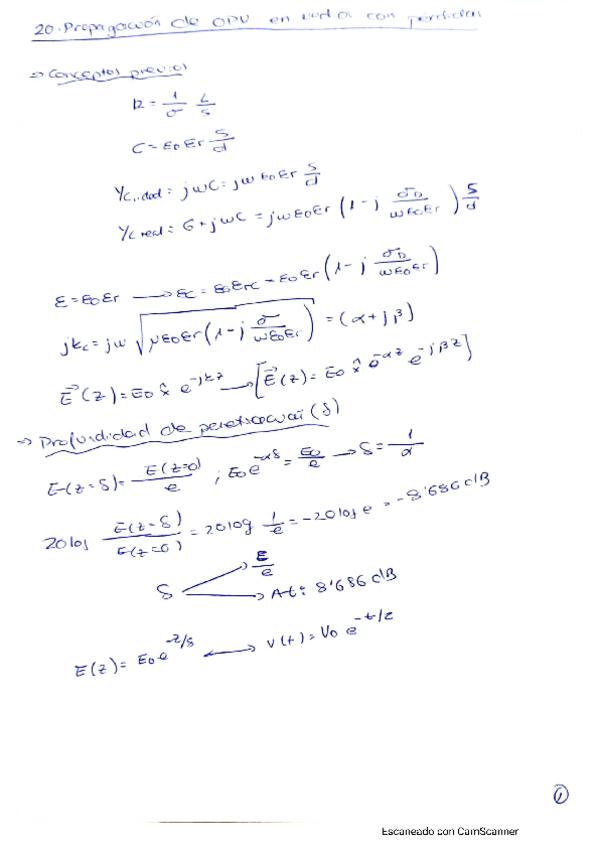 20. Propagación de OPU en medios con pérdidas
=> Conceptos previos
R = 1/σ L/S
C = ε0 εr S/d
Yc,ideal = jωC = jω ε0 εr S/d
Yc real = G + jωC = jω ε0 εr (1 - j σD/(ω ε0 εr)) S/d
ε = ε0 εr → εc = ε0 εrc = ε0 εr (1 - j σD/(ω ε0 εr))
jkc = jω √(μ ε0 εr (1 - j σ/(ω ε0 εr))) = (α + jβ)
E⃗(z) = E0 x̂ e^-jkz → [E⃗(z) = E0 x̂ e^-αz e^-jβz]
=> Profundidad de penetración (δ)
E(z=δ) = E(z=0)/e ; E0 e^-αδ = E0/e → δ = 1/α
20 log E(z=δ)/E(z=0) = 20 log 1/e = -20 log e = -8'686 dB
E/e
δ
At: 8'686 dB
E(z) = E0 e^-z/δ ↔ v(t) = V0 e^-t/τ
1
Escaneado con CamScanner